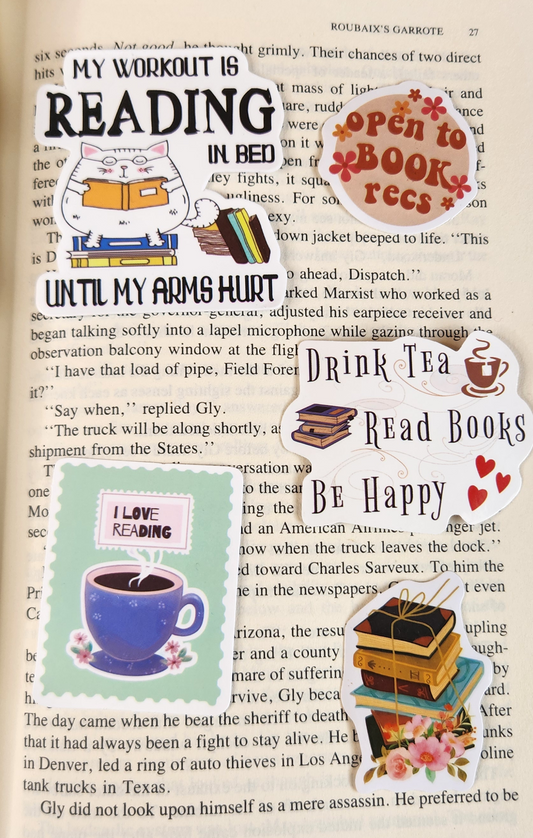 ROUBAIX'S GARROTE 27
six seconds. Not good, he thought grimly. Their chances of two direct
hits
MY WORKOUT IS
READING
IN BED
UNTIL MY ARMS HURT
open to
BOOK
recs
mass of
were
on it
fly fights, it
ugliness. For
down jacket beeped to life. “This
is D
o ahead, Dispatch.”
arked Marxist who worked as a
secretary for the governor-general, adjusted his earpiece receiver and
began talking softly into a lapel microphone while gazing through the
observation balcony window at the
“I have that load of pipe, Field
it?”
“Say when,” replied Gly.
“The truck will be along shortly,
shipment from the States.”
DRINK TEA
READ BOOKS
BE HAPPY
versation
to the
the
nd an American Airlines passenger jet.
now when the truck leaves the dock.”
ed toward Charles Sarveux. To him the
ne in the newspapers. even
I LOVE
READING
Arizona, the
er and a county
mare of suffering by
rvive, Gly
The day came when he beat the sheriff to death After
that it had always been a fight to stay alive. He
in Denver, led a ring of auto thieves in Los
tank trucks in Texas.
Gly did not look upon himself as a mere assassin. He preferred to be